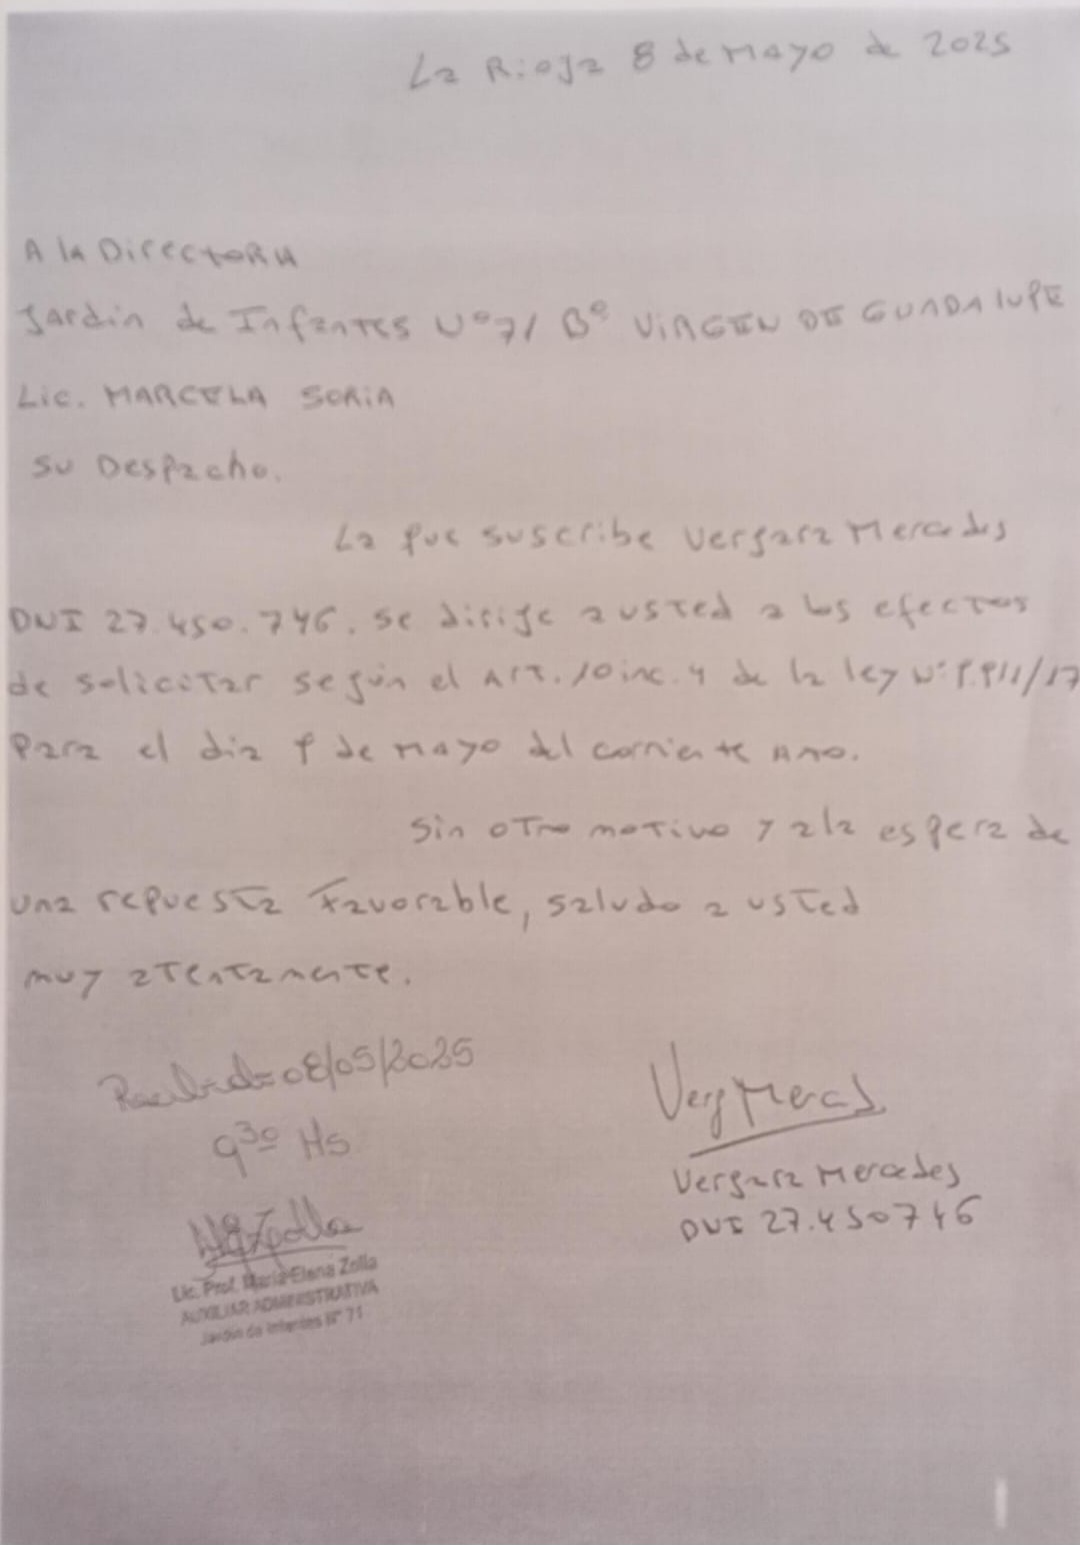 La Rioja 8 de Mayo de 2025
A la DirectoRA
Jardin de Infantes Nº 71 Bº VIRGEN DE GUADALUPE
Lic. MARCELA SORIA
Su Despacho.
La que suscribe Vergara Mercedes
DNI 27.450.746. se dirije a usted a los efectos
de solicitar según el Art. 10 inc. 4 de la ley Nº 9.911/17
Para el dia 9 de Mayo del corriente Año.
Sin otro motivo y a la espera de
una repuesta Favorable, saludo a usted
muy atentamente.
Recibido 08/05/2025
9³⁰ Hs
Verg Merced
Vergara Mercedes
DNI 27.450746
Lic. Prof. María Elena Zolla
AUXILIAR ADMINISTRATIVA
Jardín de Infantes N° 71